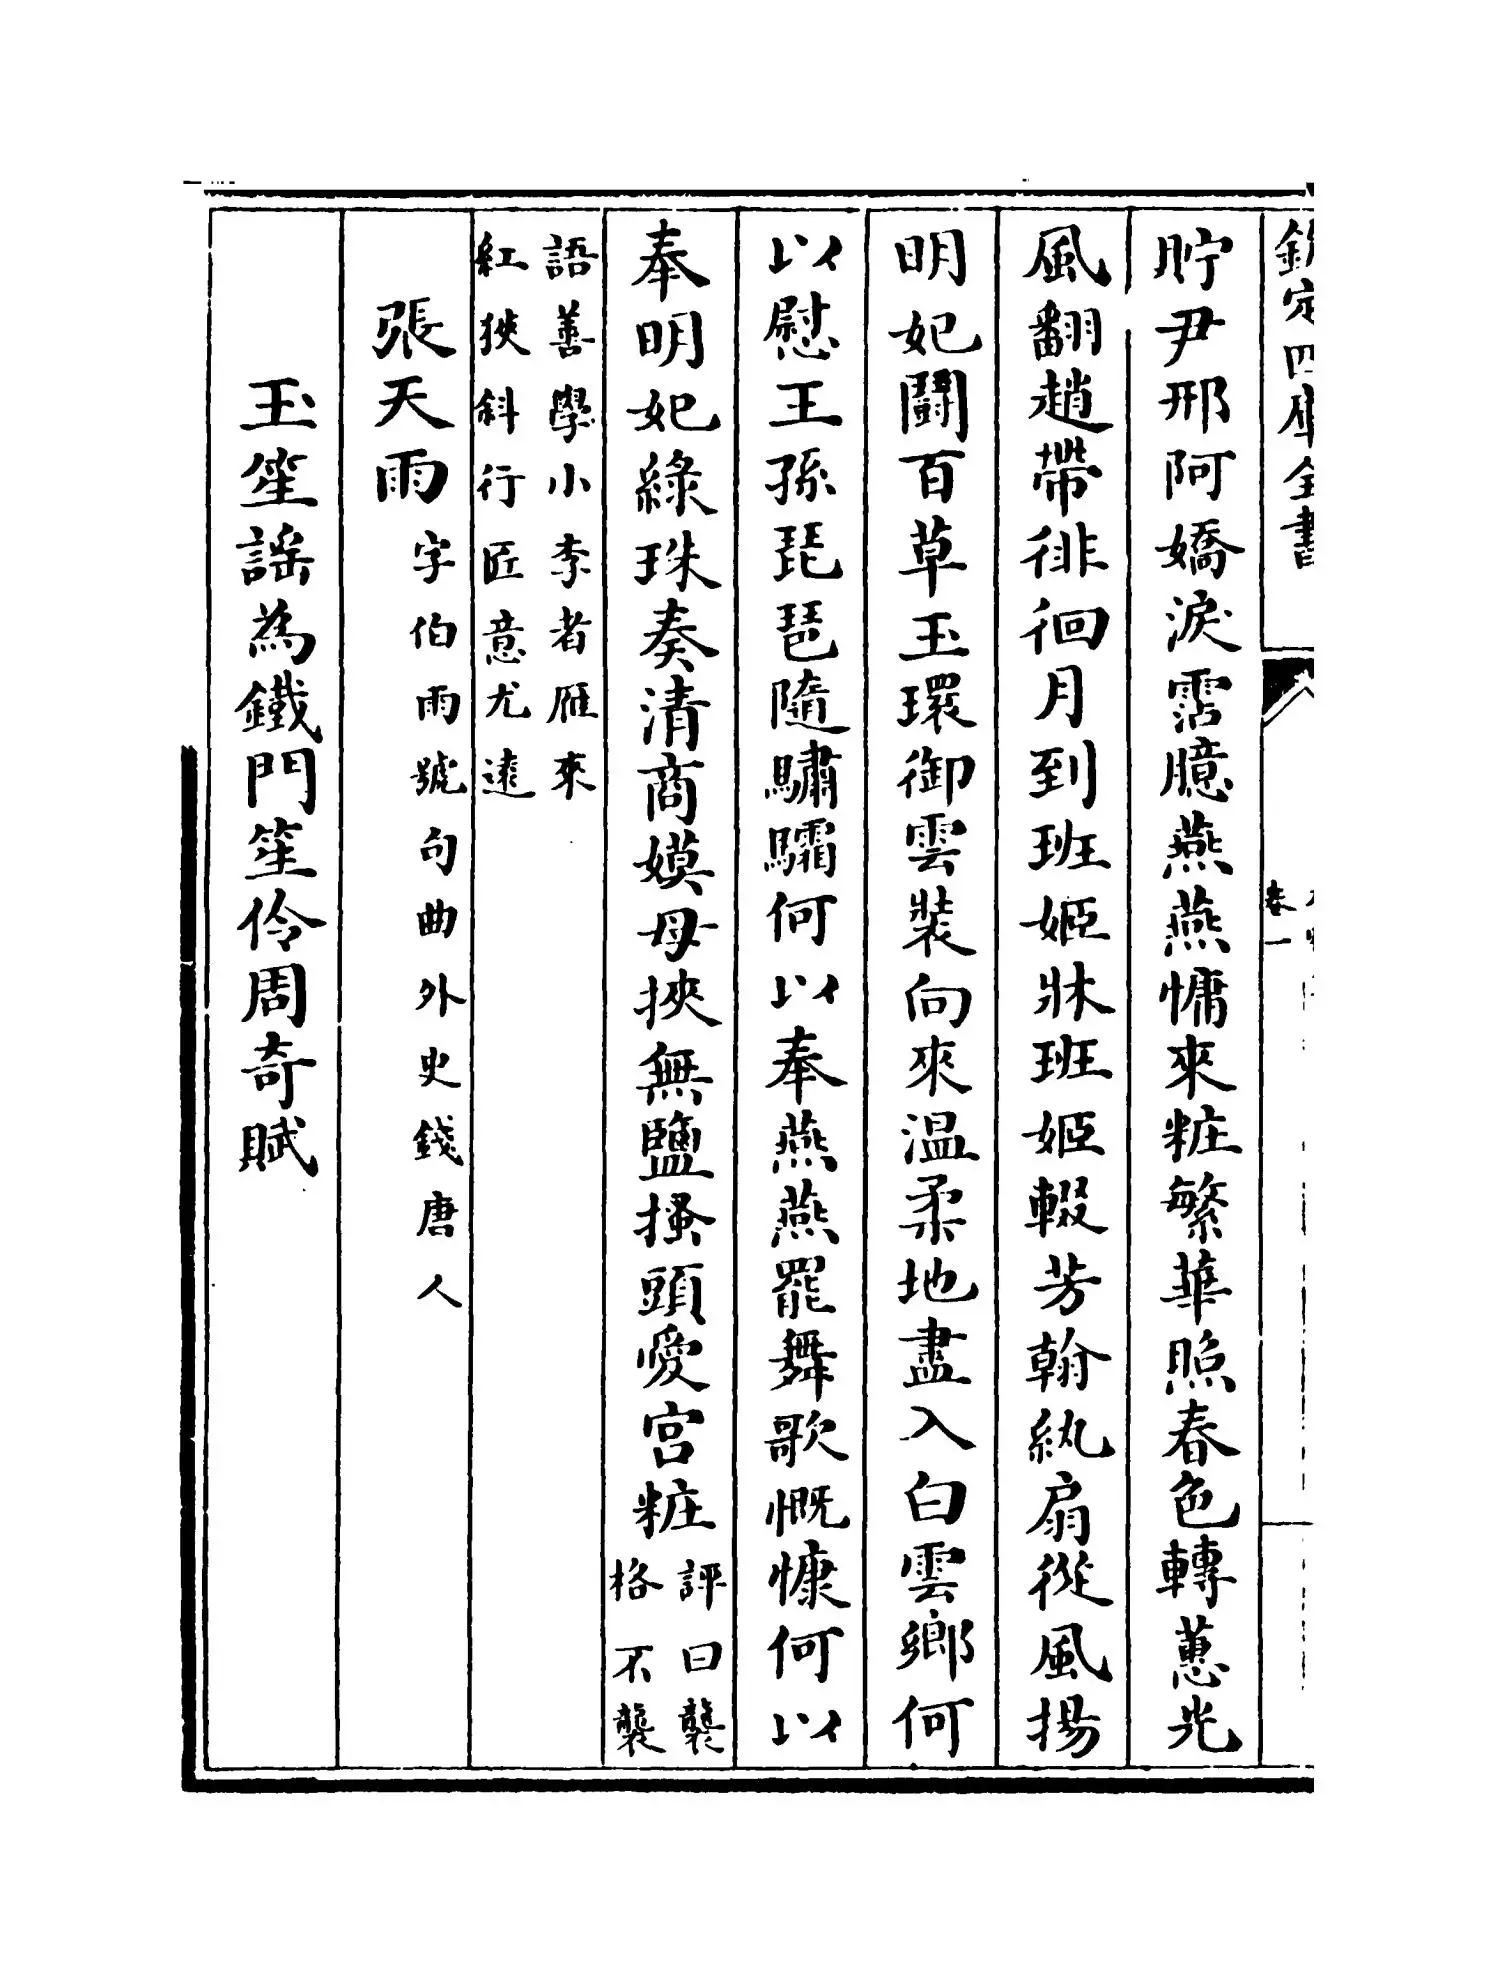 欽定四庫全書
卷一
貯尹邢阿嬌淚霑臆燕燕慵來粧繁華照春色轉蕙光
風翻趙帶徘徊月到班姬牀班姬輟芳翰紈扇從風揚
明妃鬭百草玉環御雲裝向來温柔地盡入白雲鄉何
以慰王孫琵琶隨驌驦何以奉燕燕罷舞歌慨慷何以
奉明妃綠珠奏清商嫫母挾無鹽搔頭愛宮粧評曰襲
格不襲
語善學小李者雁來
紅狹斜行匠意尤遠
張天雨字伯雨號句曲外史錢唐人
玉笙謠為鐵門笙伶周奇賦